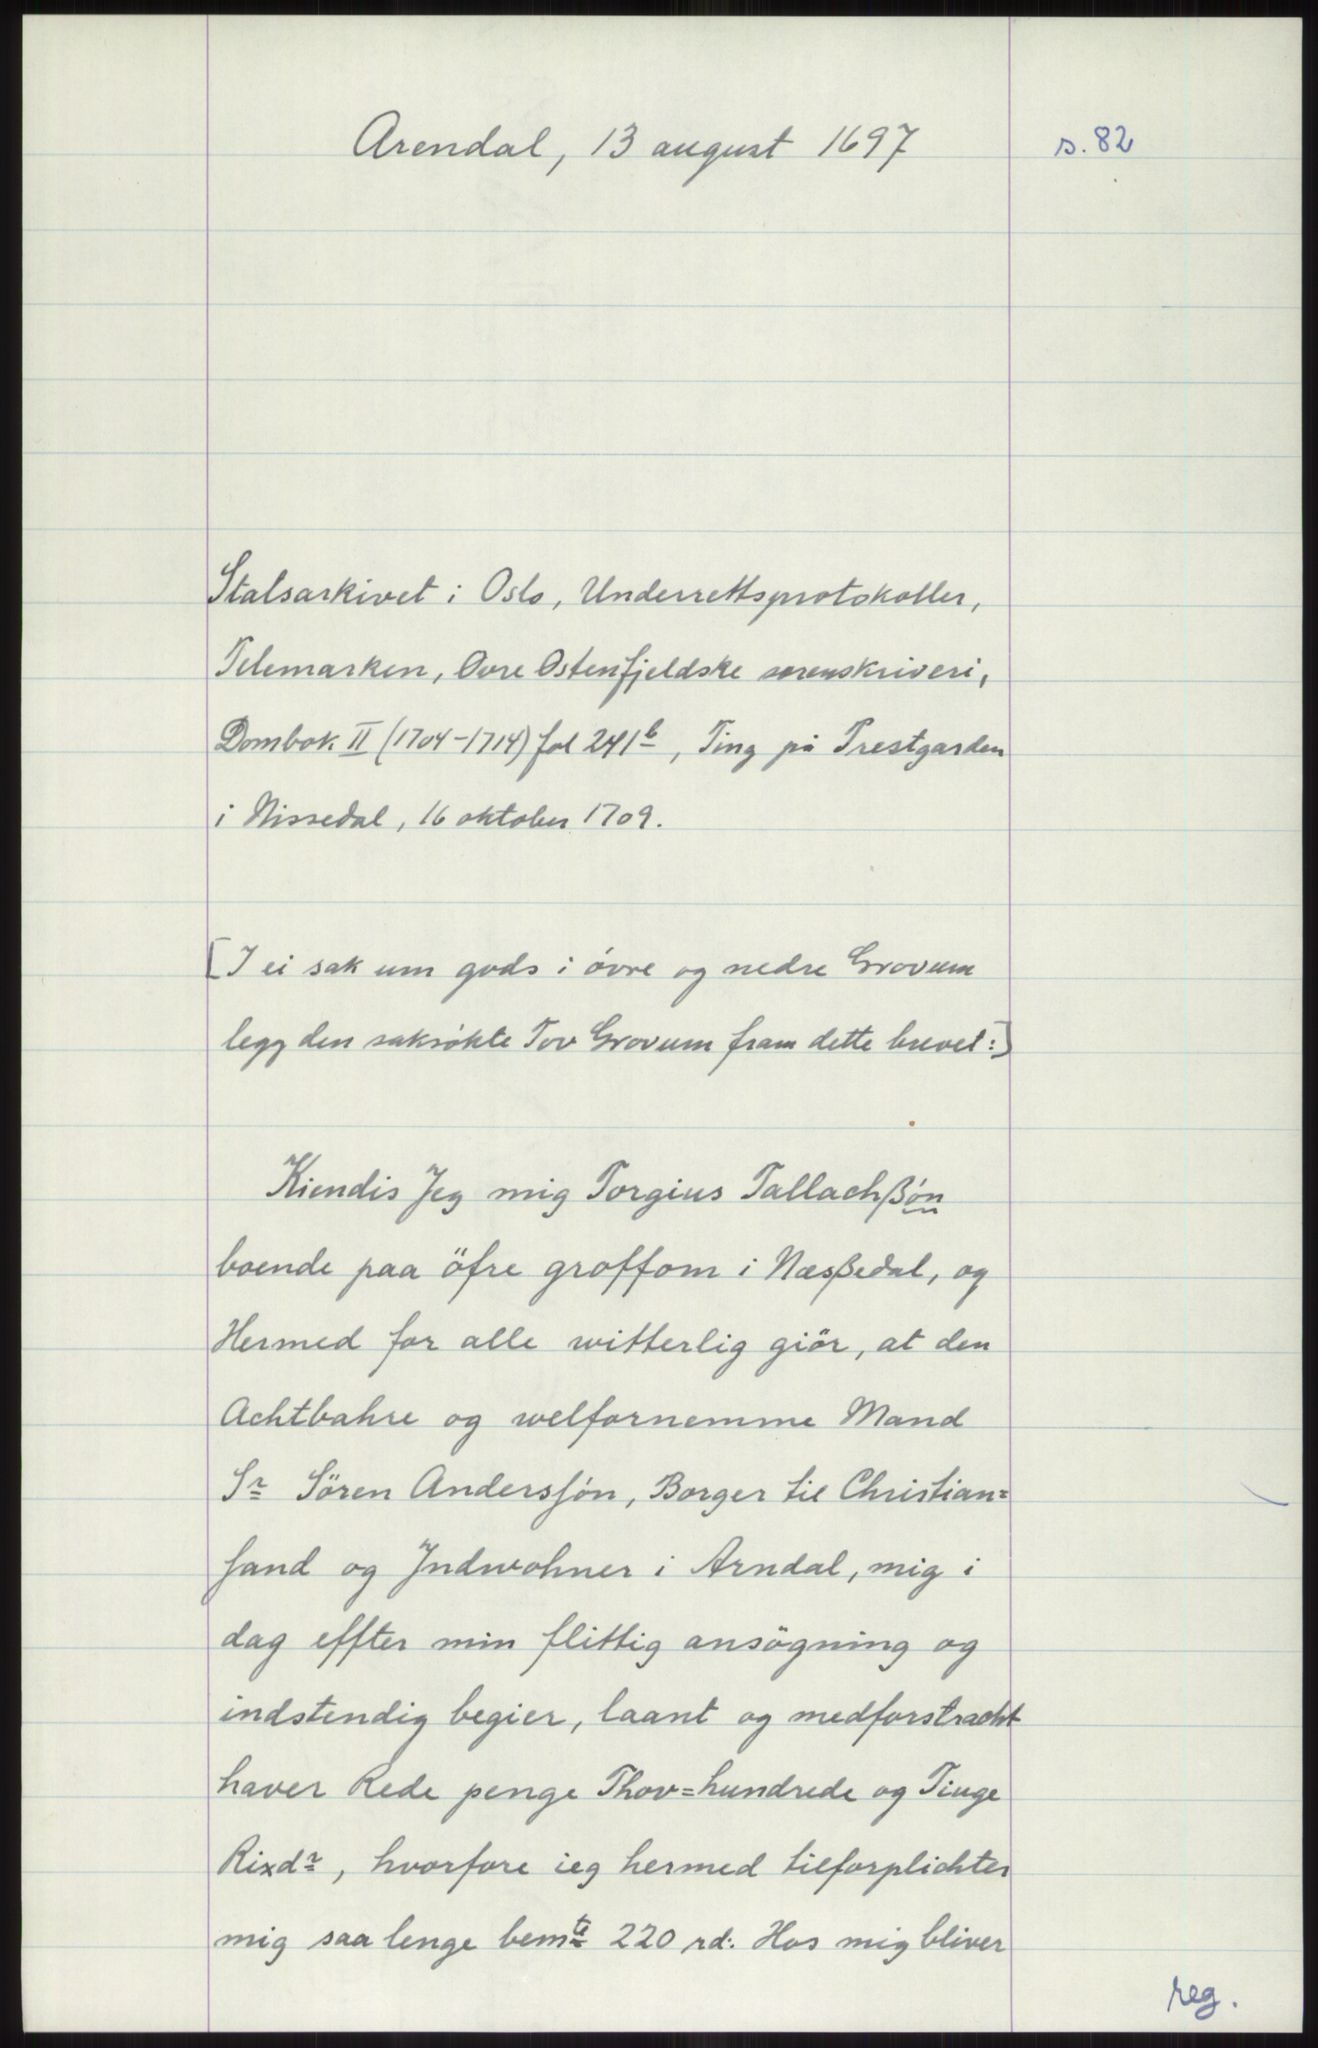 Arendal, 13 august 1697
s. 82
Statsarkivet i Oslo, Underrettsprotokoller,
Telemarken, Øvre Østenfjeldske sorenskriveri,
Dombok II (1704-1714) fol 241b, Ting på Prestgarden
i Nissedal, 16 oktober 1709.
[I ei sak um gods i óvre og nedre Grovum
legg den saksókte Tov Grovum fram dette brevet:]
Kiendis Jeg mig Torgius Tallachßón
boende paa öfre groffom i Næsßedal, og
Hermed for alle witterlig giör, at den
Achtbahre og welfornemme Mand
Sr Sören Andersſón, Borger til Christian=
ſand og Jndwohner i Arndal, mig i
dag effter min flittig ansögning og
indstendig begier, laant og medforstracht
haver Rede penge Thov=hundrede og Tiuge
Rixdr, hvorfore ieg hermed tilforplichter
mig saa lenge bemte 220 rd: Hos mig bliver
reg.